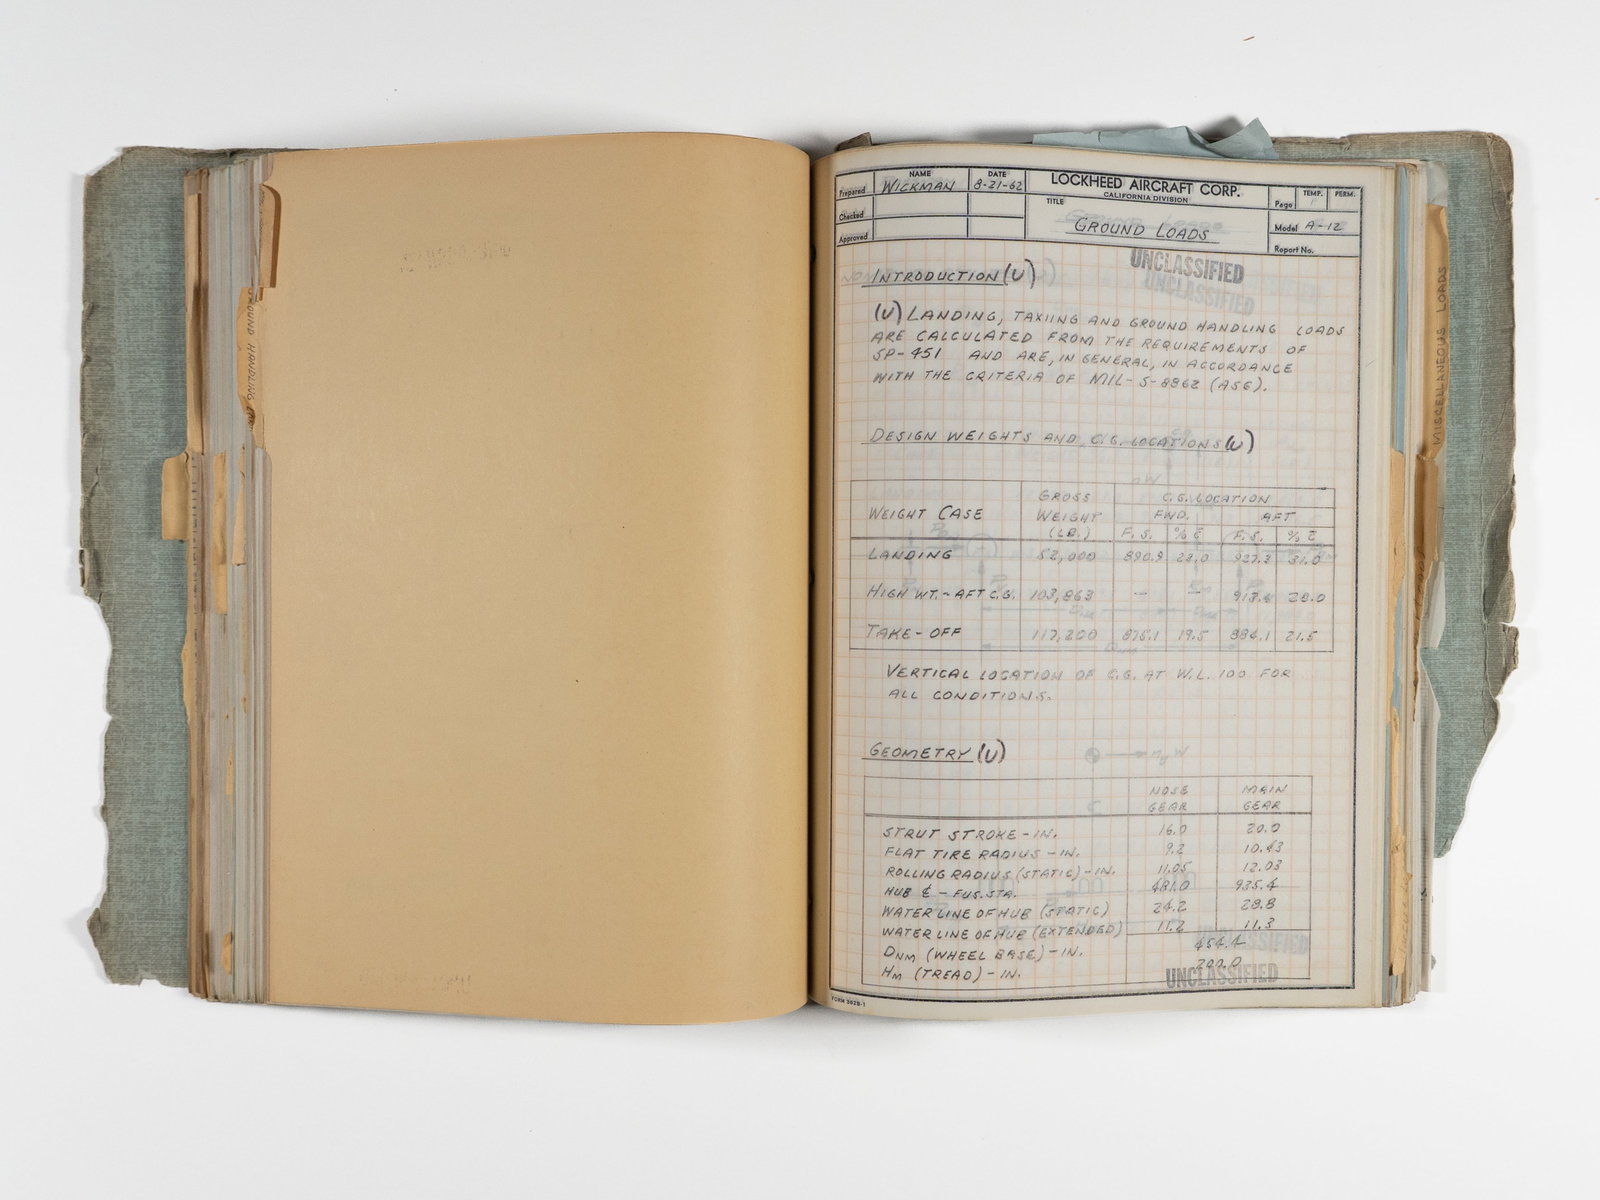 GROUND HANDLING
NAME DATE LOCKHEED AIRCRAFT CORP. TEMP. PERM.
Prepared WICKMAN 8-21-62 CALIFORNIA DIVISION Page
Checked TITLE
GROUND LOADS Model A-12
Approved Report No.
UNCLASSIFIED
UNCLASSIFIED
INTRODUCTION (U)
(U) LANDING, TAXIING AND GROUND HANDLING LOADS
ARE CALCULATED FROM THE REQUIREMENTS OF
SP-451 AND ARE, IN GENERAL, IN ACCORDANCE
WITH THE CRITERIA OF MIL-S-8862 (ASG).
DESIGN WEIGHTS AND C.G. LOCATIONS (U)
GROSS C.G. LOCATION
WEIGHT CASE WEIGHT FWD. AFT
(LB.) F.S. % C̄ F.S. % C̄
LANDING 52,000 890.9 23.0 927.3 31.0
HIGH WT. ~ AFT C.G. 103,863 — — 913.6 28.0
TAKE-OFF 117,200 875.1 19.5 884.1 21.5
VERTICAL LOCATION OF C.G. AT W.L. 100 FOR
ALL CONDITIONS.
GEOMETRY (U)
NOSE MAIN
GEAR GEAR
STRUT STROKE - IN. 16.0 20.0
FLAT TIRE RADIUS - IN. 9.2 10.43
ROLLING RADIUS (STATIC) - IN. 11.05 12.03
HUB ℄ - FUS. STA. 481.0 935.4
WATER LINE OF HUB (STATIC) 24.2 28.8
WATER LINE OF HUB (EXTENDED) 11.2 11.3
DNM (WHEEL BASE) - IN. 454.4
HM (TREAD) - IN. 200.0
UNCLASSIFIED
UNCLASSIFIED
FORM 3628-1
MISCELLANEOUS LOADS